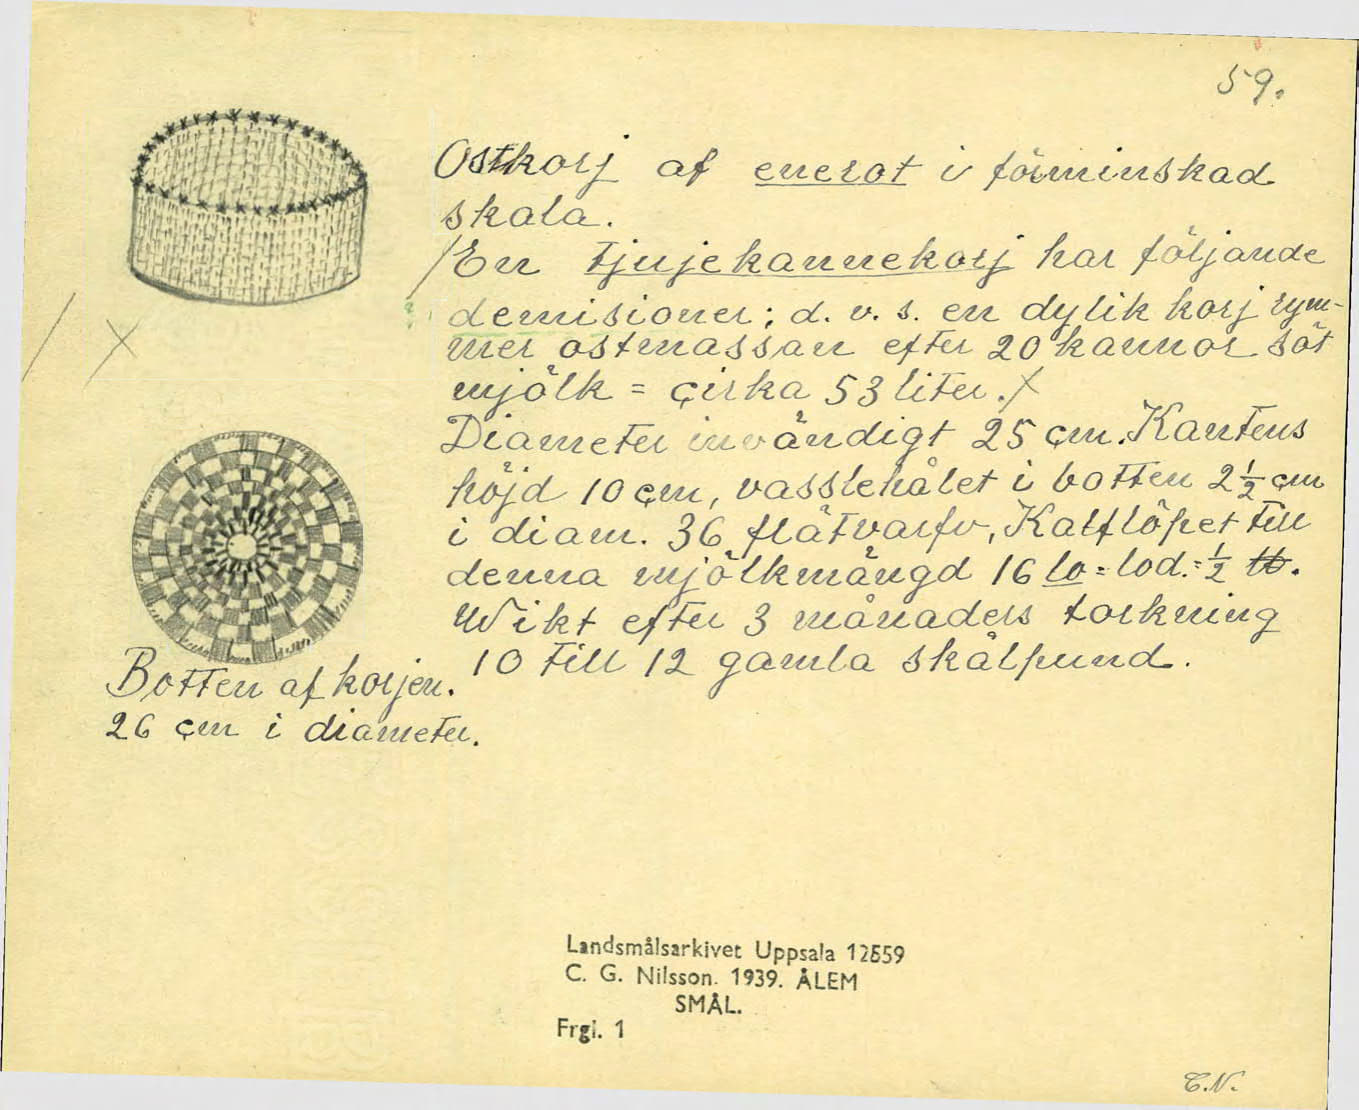 59.
Ostkorj af enerot i förminskad
skala.
/En tjujekannekorj har följande
demisioner; d. v. s. en dylik korj rym-
mer ostmassan efter 20 kannor söt
mjölk = cirka 53 liter./
Diameter invändigt 25 cm. Kantens
höjd 10 cm, vasslehålet i botten 2 1/2 cm
i diam. 36 flätvarfv, Kalflöpet till
denna mjölkmängd 16 lo = lod. = 1/2 ℔.
Wikt efter 3 månaders torkning
10 till 12 gamla skålpund.
Botten af korjen.
26 cm i diameter.
Landsmålsarkivet Uppsala 12559
C. G. Nilsson. 1939. ÅLEM
SMÅL.
Frgl. 1
C.N.